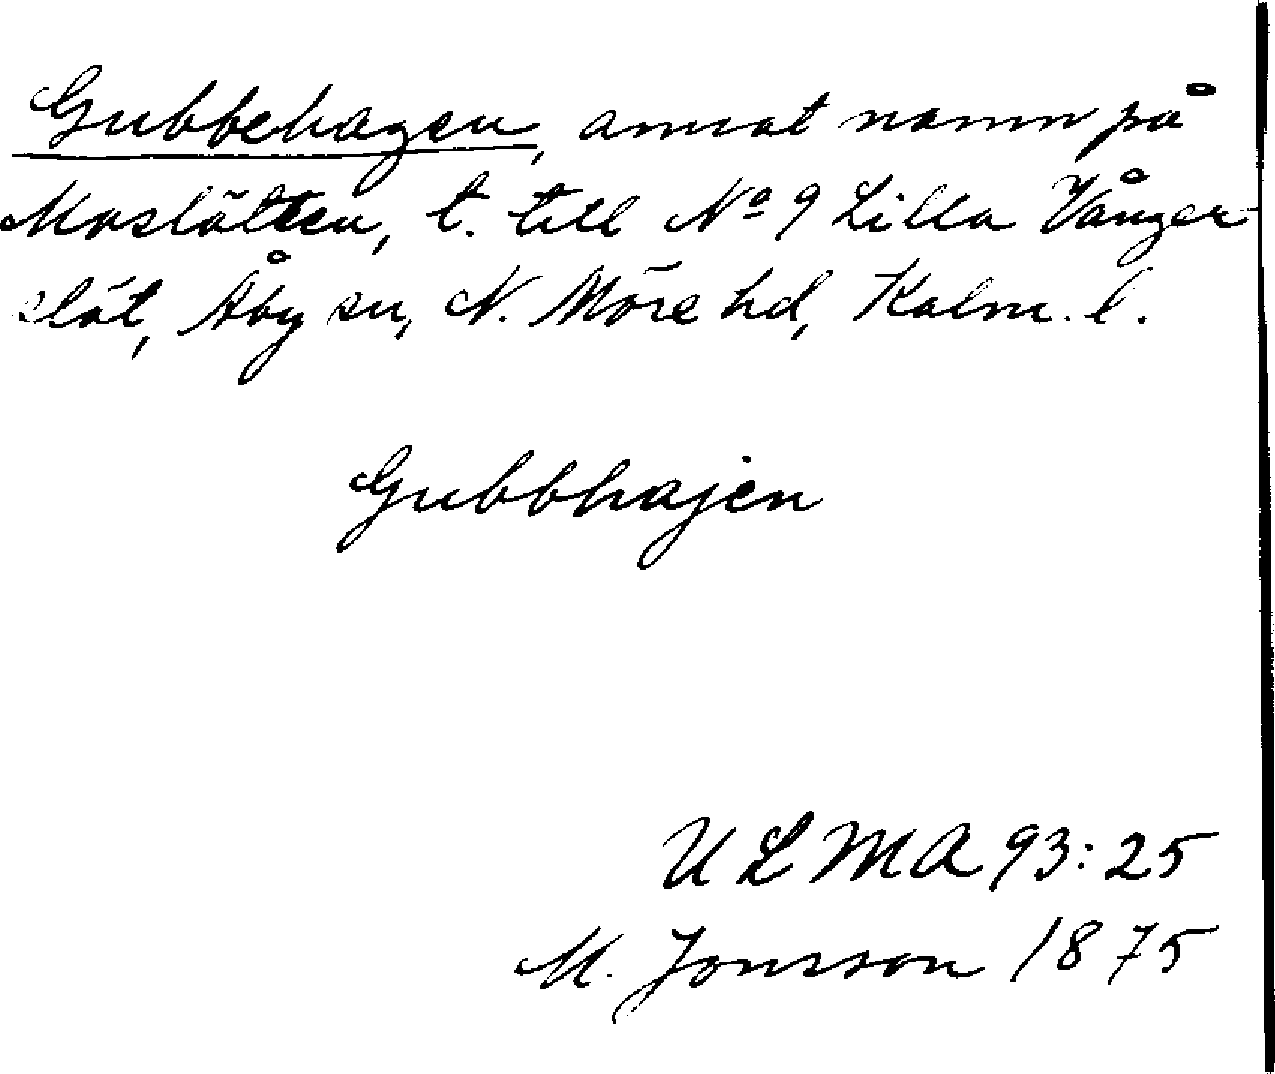 Gubbehagen, annat namn på
Moslätten, t. till Nº 9 Lilla Vånger-
slät, Åby sn, N. Möre hd, Kalm. l.
Gubbhajen
ULMA 93:25
M. Jonsson 1875